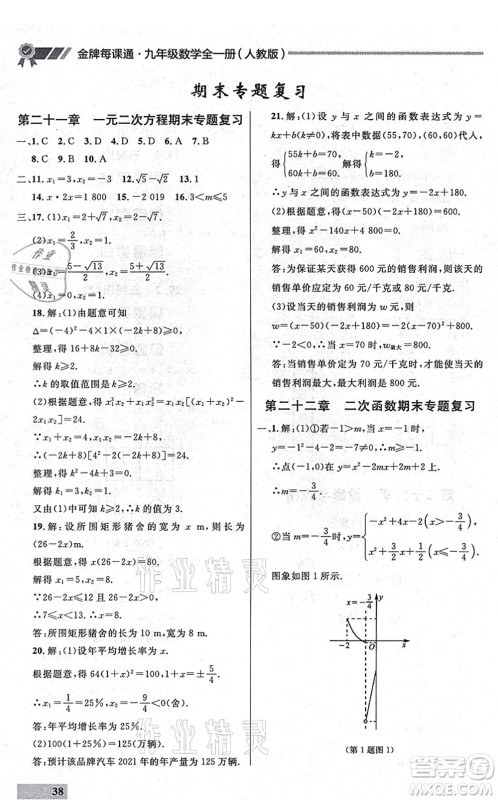 金牌每课通·九年级数学全一册(人教版)
期末专题复习
第二十一章 一元二次方程期末专题复习
一、1. C 2. C 3. C 4. D 5. D 6. D 7. A
8. C 9. B 10. A
二、11. x₁=3, x₂=-3 12. √5-√2 13. 1
14. x·2x=1 800 15. -2 019 16. 3<m≤5
三、17. (1)x₁=2+√7, x₂=2-√7.
(2)x₁=2/3, x₂=1.
(3)x₁=(5-√13)/2, x₂=(5+√13)/2.
(4)x₁=0, x₂=1.
18. 解:(1)由题意可知
Δ=(-4)²-4×1×(-2k+8)≥0,
整理,得16+8k-32≥0,解得k≥2.
∴k的取值范围是k≥2.
(2)根据题意,得x₁³x₂+x₁x₂³=24,
整理,得x₁x₂[(x₁+x₂)²-2x₁x₂]=24,
∴(-2k+8)[4²-2(-2k+8)]=24,
整理,得k²-4k+3=0,解得k₁=3,k₂=1.
又由(1)中可知k≥2,∴k的值为3.
19. 解:设所围矩形猪舍的宽为x m,则长为
(26-2x) m.
根据题意,得x(26-2x)=80.
解得x₁=5, x₂=8.
∵26-2x≤12,26-2x≥x,
∴7≤x≤26/3,∴x=8.
答:所围矩形猪舍的长为10 m,宽为8 m.
20. 解:(1)设年平均增长率为x.
根据题意,得64(1+x)²=100,∴1+x=±5/4.
∴x₁=1/4=25%, x₂=-9/4<0(舍).
答:年平均增长率为25%.
(2)100×(1+25%)=125(万辆).
答:预计该品牌汽车2021年的年产量为125万辆.
21. 解:(1)设y与x之间的函数关系式为y=
kx+b(k≠0),将表中数据(55,70),(60,60)代
入,得{55k+b=70, 60k+b=60.解得{k=-2, b=180.
∴y与x之间的函数关系式为y=-2x+180.
(2)根据题意,得(x-50)(-2x+180)=600,
整理,得x²-140x+4 800=0,
解得x₁=60, x₂=80.
答:为保证某天获得600元的销售利润,则该天的
销售单价应定为60元/千克或80元/千克.
(3)设当天的销售利润为w元,则w=(x-50)
(-2x+180)=-2(x-70)²+800,
∵-2<0,∴当x=70时,w最大值=800.
答:当销售单价定为70元/千克时,才能使当天的
销售利润最大,最大利润是800元.
第二十二章 二次函数期末专题复习
一、1. 解:(1)①若-1>m,当x=-1时,y=3,
∴点(-1,0)不在图象上,∴m≥-1.
∴m=-3/4.
②当m=-3/4时,y={-x²+4x-2(x≥-3/4), x²+x(x<-3/4).
图象如图1所示.
x=-3/4
y
-2
O
x
(第1题图1)
38
作业精灵